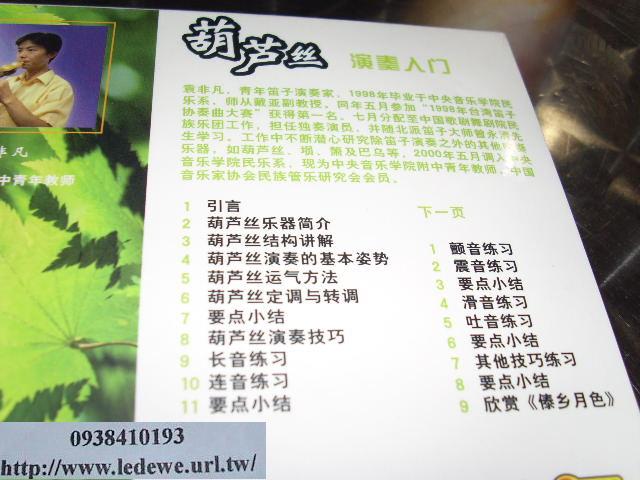 葫芦丝 演奏入门
袁非凡，青年笛子演奏家，1998年毕业于中央音乐学院民
乐系，师从戴亚副教授。同年五月参加“1998年台湾笛子
协奏曲大赛”获得第一名，七月分配至中国歌舞剧院民
族乐团工作，担任独奏演员，并随北派笛子大师曾永清先
生学习。工作中不断潜心研究除笛子演奏之外的其他吹奏
乐器，如葫芦丝、埙、箫及巴乌等，2000年五月调入中央
音乐学院民乐系，现为中央音乐学院附中青年教师，中国
音乐家协会民族管乐研究会会员。
非凡
中青年教师
1 引言
2 葫芦丝乐器简介
3 葫芦丝结构讲解
4 葫芦丝演奏的基本姿势
5 葫芦丝运气方法
6 葫芦丝定调与转调
7 要点小结
8 葫芦丝演奏技巧
9 长音练习
10 连音练习
11 要点小结
下一页
1 颤音练习
2 震音练习
3 要点小结
4 滑音练习
5 吐音练习
6 要点小结
7 其他技巧练习
8 要点小结
9 欣赏《傣乡月色》
0938410193
http://www.ledewe.url.tw/